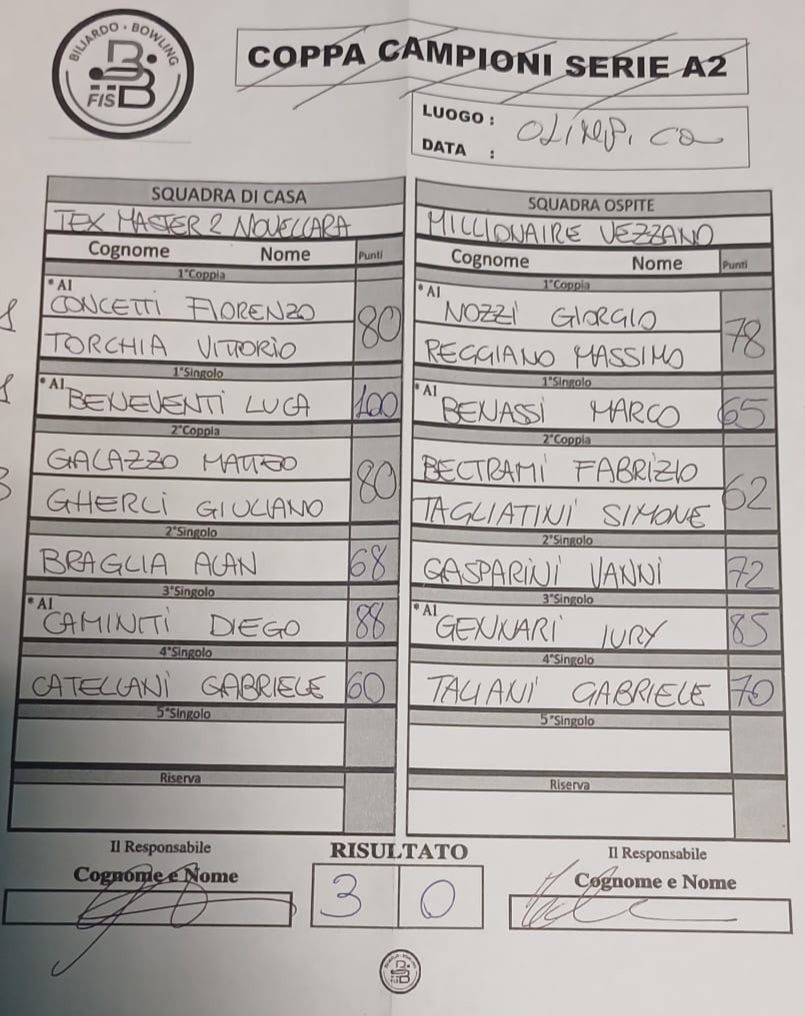 BILIARDO - BOWLING
FISBB
COPPA CAMPIONI SERIE A2
LUOGO :
OLIMPICA
DATA :
SQUADRA DI CASA
TEX MASTER 2 NOVELLARA
Cognome Nome Punti
1°Coppia
* A1
CONCETTI FIORENZO
80
TORCHIA VITTORIO
1°Singolo
* A1
BENEVENTI LUCA 100
2°Coppia
GALAZZO MATTEO
80
GHERLI GIULIANO
2°Singolo
BRAGLIA ALAN 68
3°Singolo
* A1
CAMINITI DIEGO 88
4°Singolo
CATELLANI GABRIELE 60
5°Singolo
Riserva
SQUADRA OSPITE
MILLIONAIRE VEZZANO
Cognome Nome Punti
1°Coppia
* A1
NOZZI GIORGIO
78
REGGIANO MASSIMO
1°Singolo
* A1
BENASSI MARCO 65
2°Coppia
BELTRAMI FABRIZIO
62
TAGLIATINI SIMONE
2°Singolo
GASPARINI VANNI 72
3°Singolo
* A1
GENNARI IURY 85
4°Singolo
TALIANI GABRIELE 70
5°Singolo
Riserva
Il Responsabile
Cognome e Nome
RISULTATO
3 0
Il Responsabile
Cognome e Nome